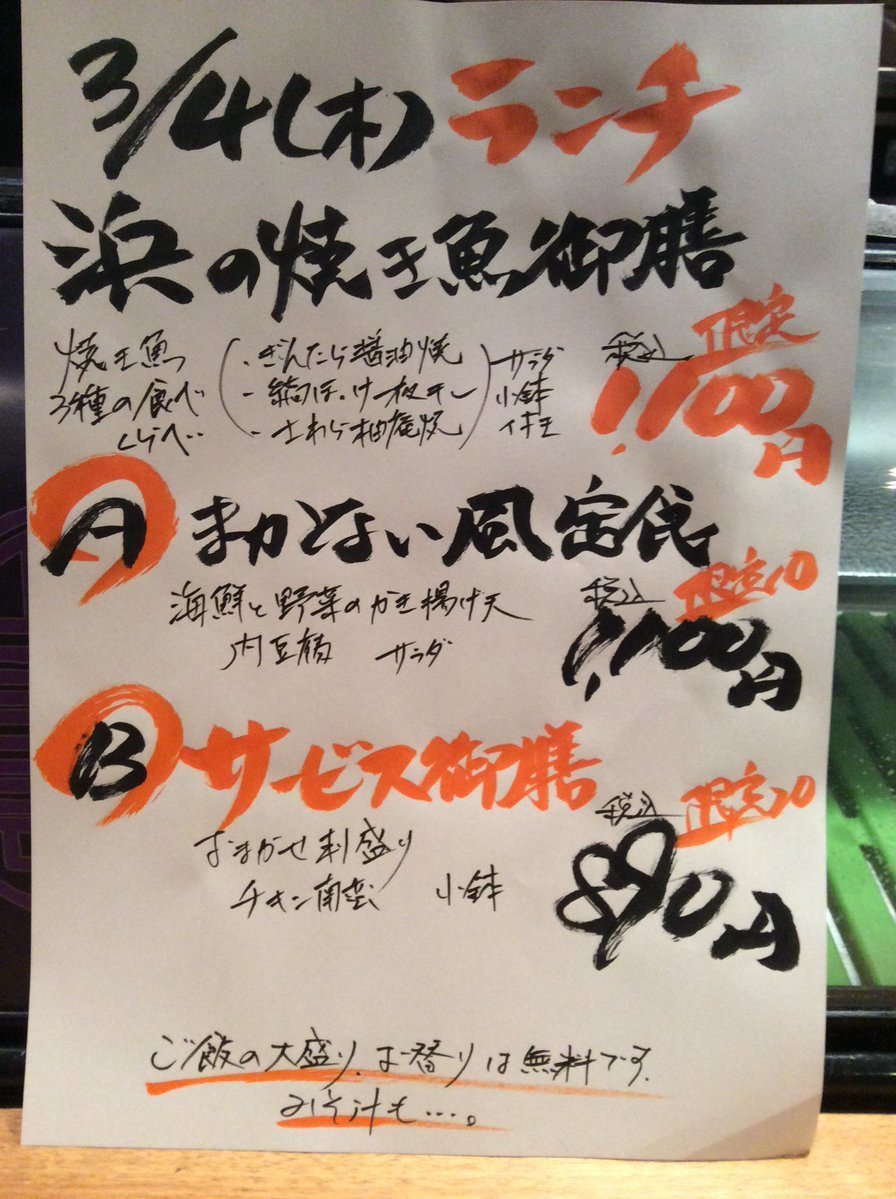 3/4(木)ランチ
浜の焼き魚御膳
限定
税込
1,100円
焼き魚
3種の食べ
くらべ
・ぎんたら醤油焼
・縞ほっけ一夜干し
・さわら柚庵焼
サラダ
小鉢
付き
A まかない風定食
海鮮と野菜のかき揚げ天
肉豆腐 サラダ
限定10
税込
1,100円
B サービス御膳
おまかせ刺盛り
チキン南蛮 小鉢
限定20
税込
890円
ご飯の大盛り、お替りは無料です。
みそ汁も…。